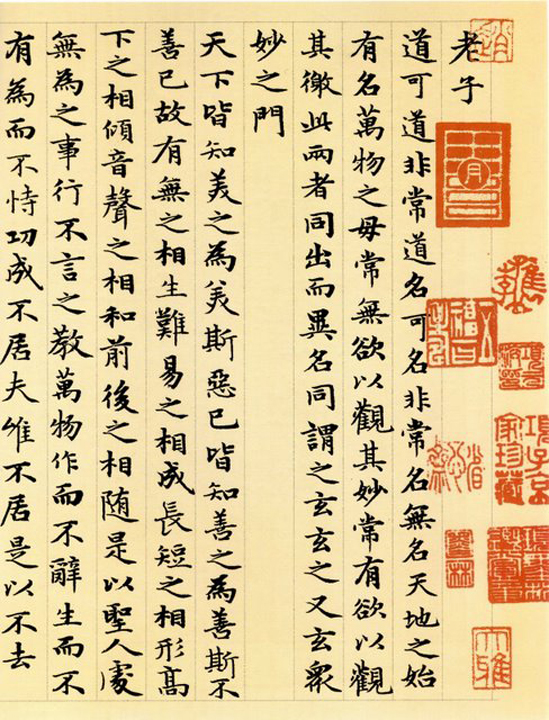 老子
道可道非常道名可名非常名無名天地之始
有名萬物之母常無欲以觀其妙常有欲以觀
其徼此兩者同出而異名同謂之玄玄之又玄衆
妙之門
天下皆知美之為美斯惡已皆知善之為善斯不
善已故有無之相生難易之相成長短之相形高
下之相傾音聲之相和前後之相随是以聖人處
無為之事行不言之教萬物作而不辭生而不
有為而不恃功成不居夫唯不居是以不去
項子京家珍藏